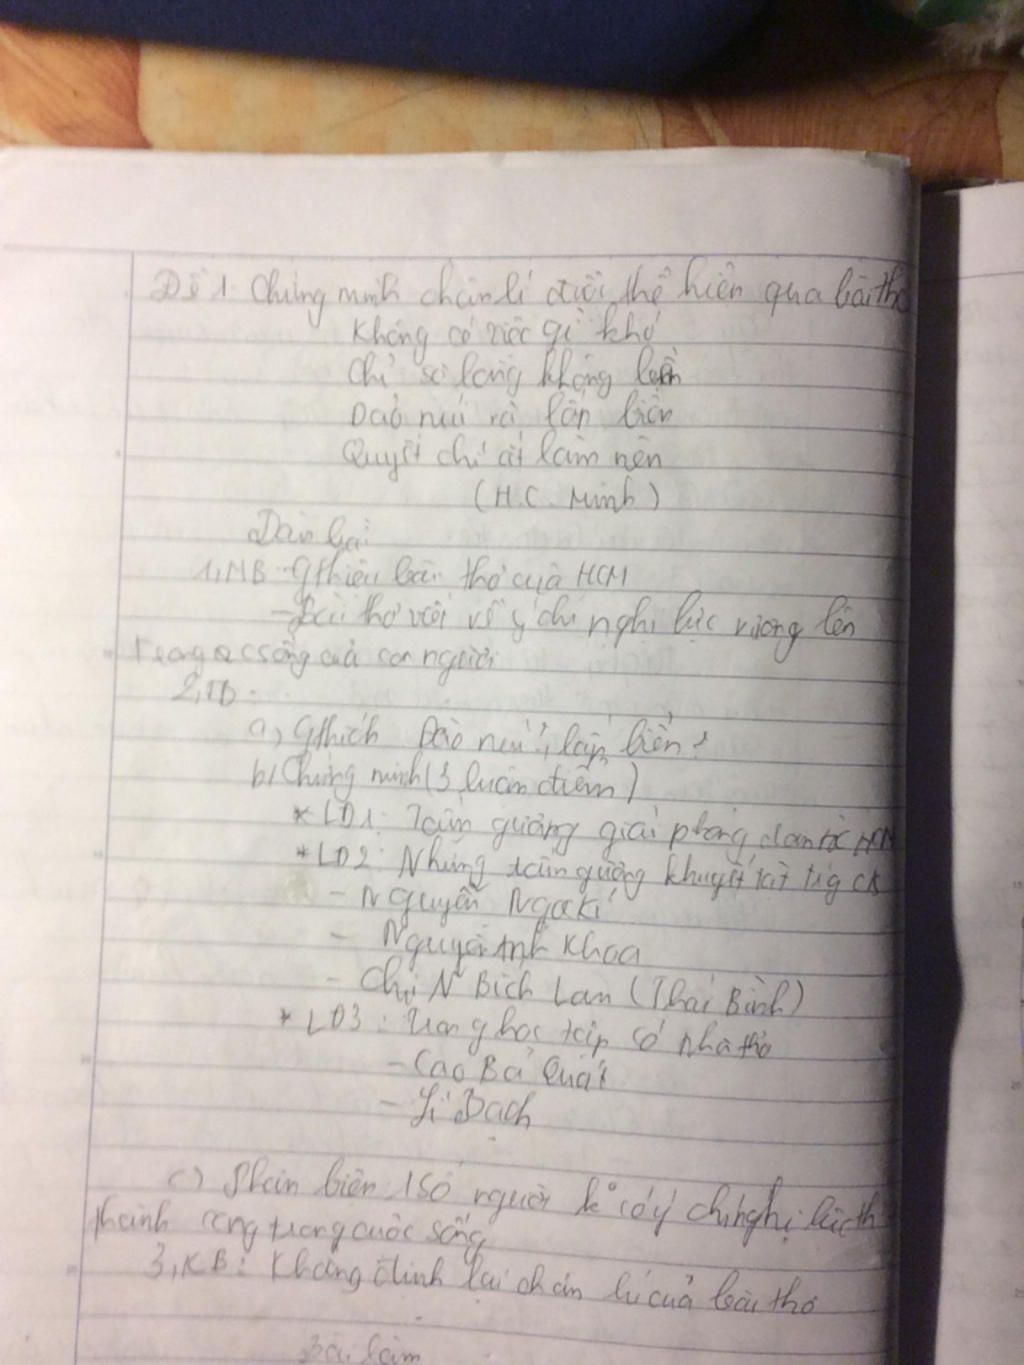 Đề 1: Chứng minh chân lí đời thể hiện qua bài thơ
Không có việc gì khó
Chỉ sợ lòng không bền
Đào núi và lấp biển
Quyết chí ắt làm nên
(H.C. Minh)
Dàn bài
1, MB - Gthiệu bài thơ của HCM
- Bài thơ viết về ý chí nghị lực vương lên
trong csống của con người
2, TB:
a, Gthích Đào núi, lấp biển?
b, Chứng minh (3 luận điểm)
* LĐ1: Tấm gương giải phóng dân tộc HCM
* LĐ2: Những tấm gương khuyết tật
- Nguyễn Ngọc Kí
- Nguyễn Anh Khoa
- Chị N Bích Lan (Thái Bình)
* LĐ3: Trong học tập có nhà thơ
- Cao Bá Quát
- Lí Bạch
c) Phản biện 1 số người k° có ý chí nghị lực
thành công trong cuộc sống
3, KB: Khẳng định lại chân lí của bài thơ
Bài làm